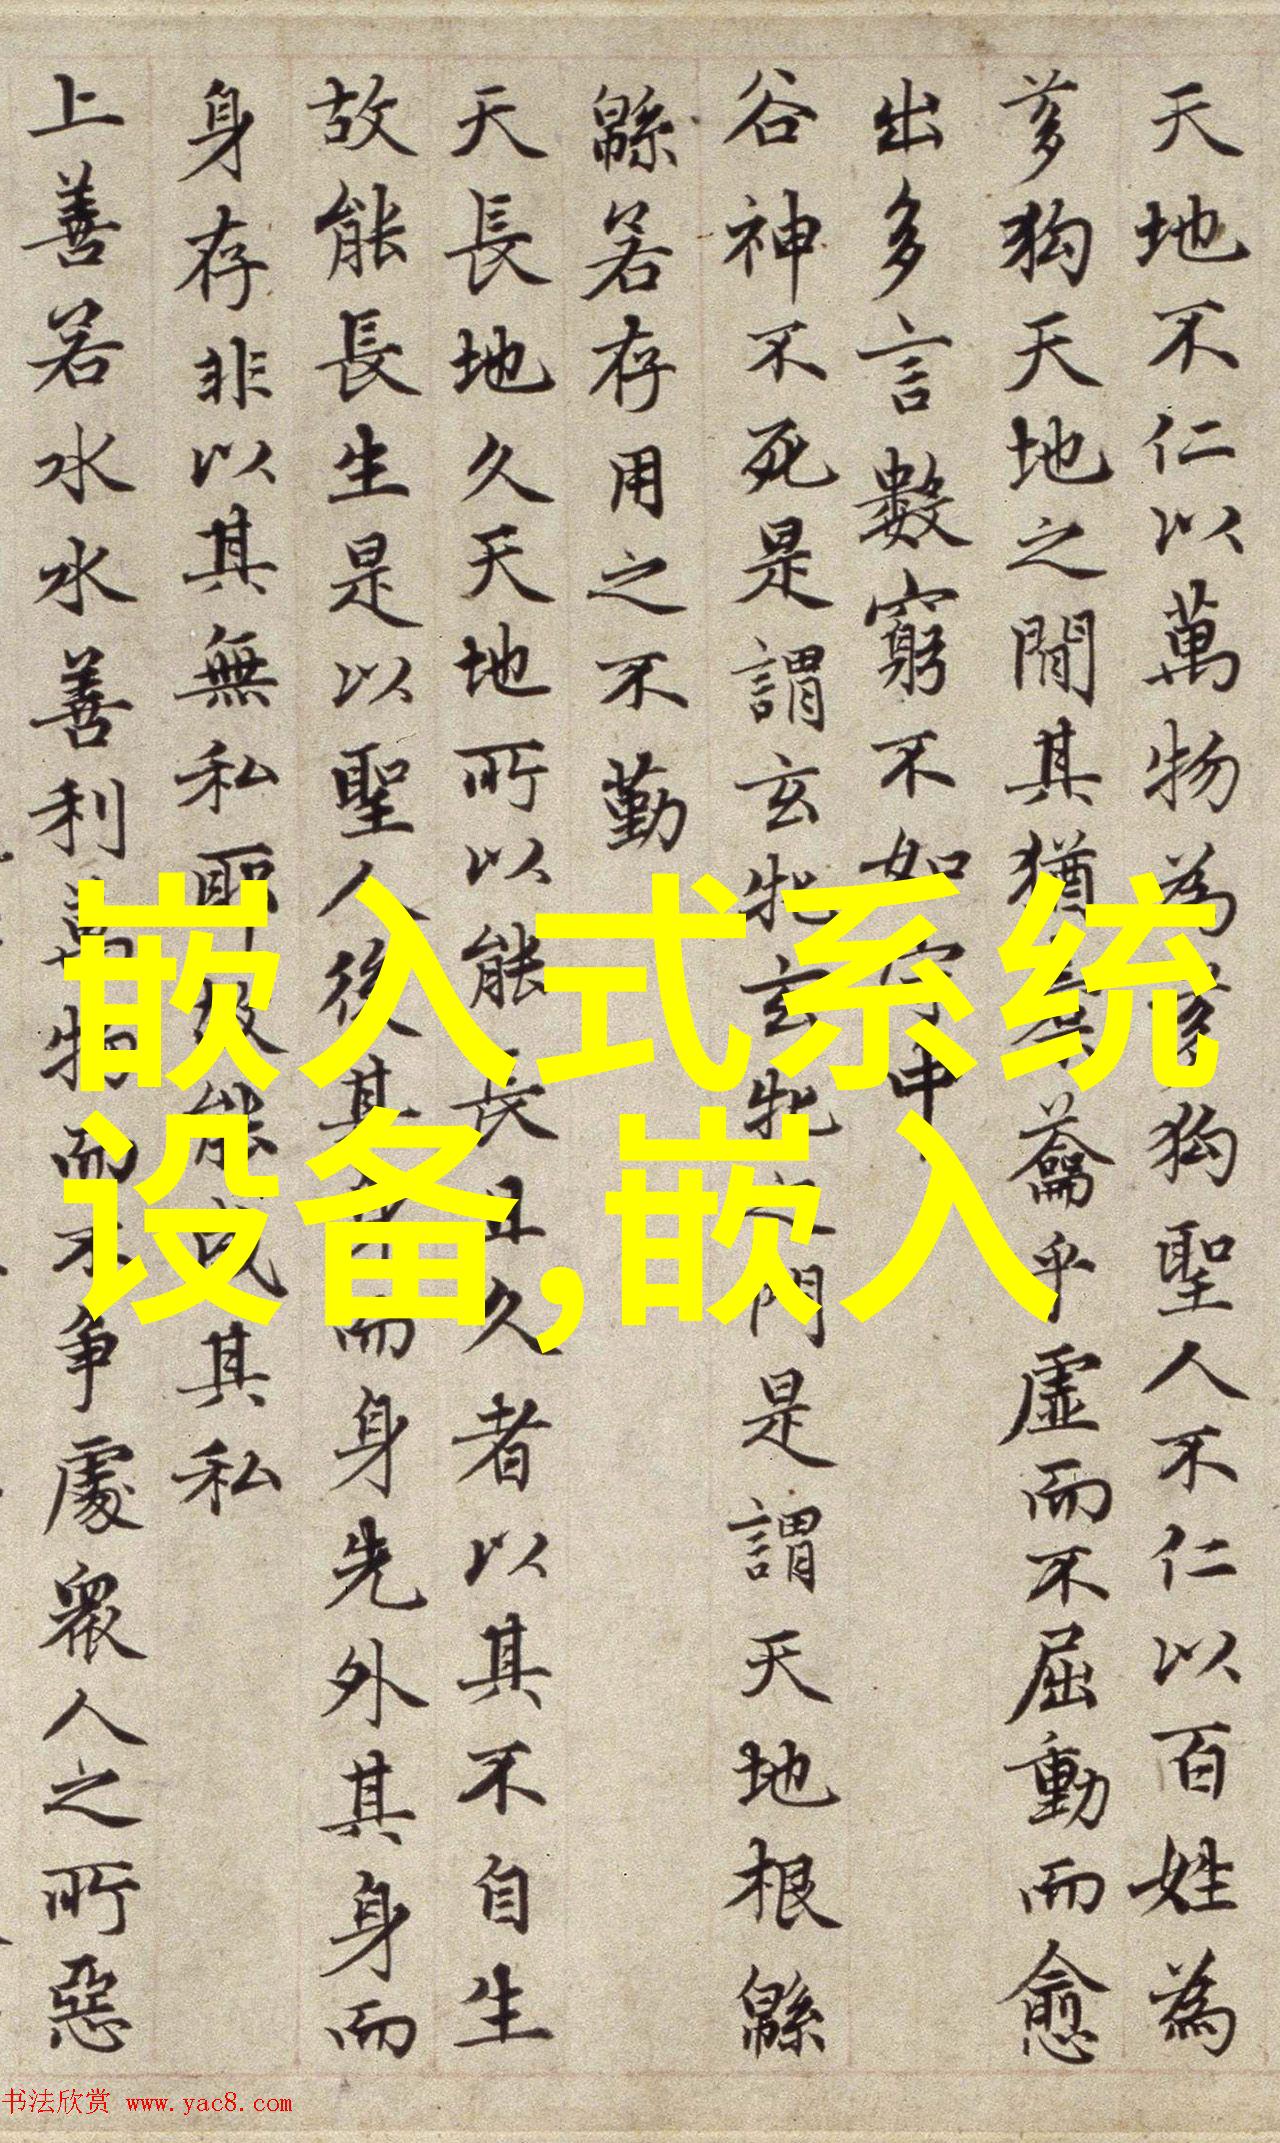 天地不仁以萬物為芻狗聖人不仁以百姓為
芻狗天地之間其猶橐籥乎虛而不屈動而愈
出多言數窮不如守中
谷神不死是謂玄牝玄牝之門是謂天地根緜
緜若存用之不勤
天長地久天地所以能長且久者以其不自生
故能長生是以聖人後其身而身先外其身而
身存非以其無私耶故能成其私
上善若水水善利萬物而不争處衆人之所惡
嵌入式系统
设备,嵌入
书法欣赏 www.yac8.com